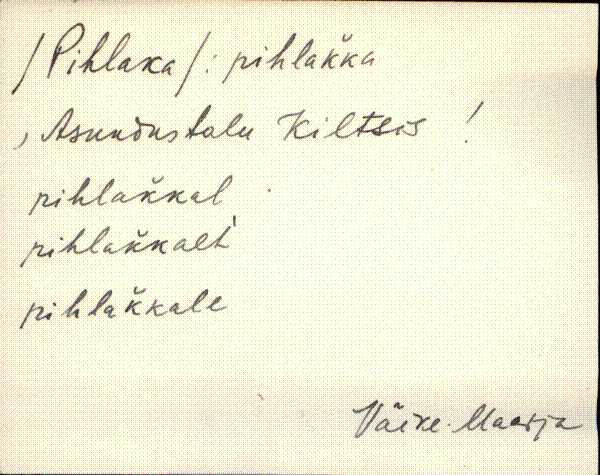 /Pihlaka/: pihlak̆ka
, Asundustalu Kiltsis !
pihlak̆kal
pihlak̆kalt
pihlak̆kale
Väike-Maarja